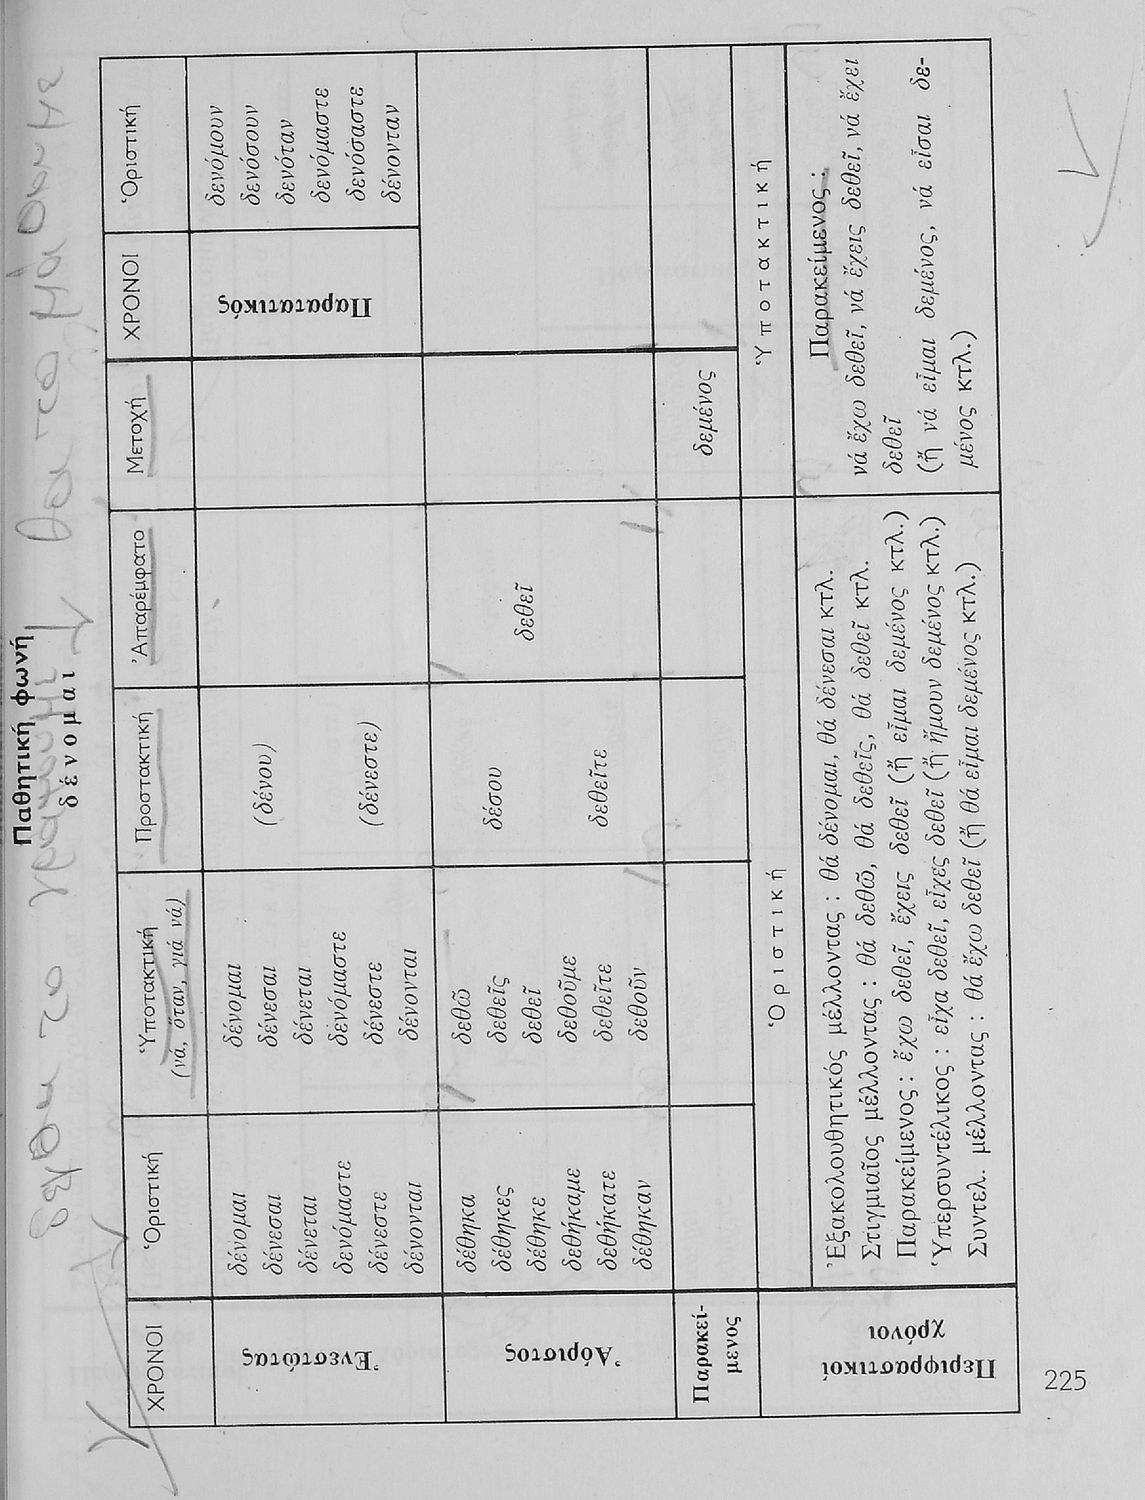 Παθητική φωνή
δένομαι
ΧΡΟΝΟΙ
Ὁριστική
Ὑποτακτική
(νά, ὅταν, γιά νά)
Προστακτική
Ἀπαρέμφατο
Μετοχή
ΧΡΟΝΟΙ
Ὁριστική
Ἐνεστώτας
δένομαι
δένεσαι
δένεται
δενόμαστε
δένεστε
δένονται
δένομαι
δένεσαι
δένεται
δενόμαστε
δένεστε
δένονται
(δένου)
(δένεστε)
Παρατατικός
δενόμουν
δενόσουν
δενόταν
δενόμαστε
δενόσαστε
δένονταν
Ἀόριστος
δέθηκα
δέθηκες
δέθηκε
δεθήκαμε
δεθήκατε
δέθηκαν
δεθῶ
δεθεῖς
δεθεῖ
δεθοῦμε
δεθεῖτε
δεθοῦν
δέσου
δεθεῖτε
δεθεῖ
Παρακεί-
μενος
δεμένος
Περιφραστικοί
χρόνοι
Ὁριστική
Ἐξακολουθητικός μέλλοντας : θά δένομαι, θά δένεσαι κτλ.
Στιγμιαῖος μέλλοντας : θά δεθῶ, θά δεθεῖς, θά δεθεῖ κτλ.
Παρακείμενος : ἔχω δεθεῖ, ἔχεις δεθεῖ (ἤ εἶμαι δεμένος κτλ.)
Ὑπερσυντέλικος : εἶχα δεθεῖ, εἶχες δεθεῖ (ἤ ἤμουν δεμένος κτλ.)
Συντελ. μέλλοντας : θά ἔχω δεθεῖ (ἤ θά εἶμαι δεμένος κτλ.)
Ὑποτακτική
Παρακείμενος :
νά ἔχω δεθεῖ, νά ἔχεις δεθεῖ, νά ἔχει
δεθεῖ
(ἤ νά εἶμαι δεμένος, νά εἶσαι δε-
μένος κτλ.)
225